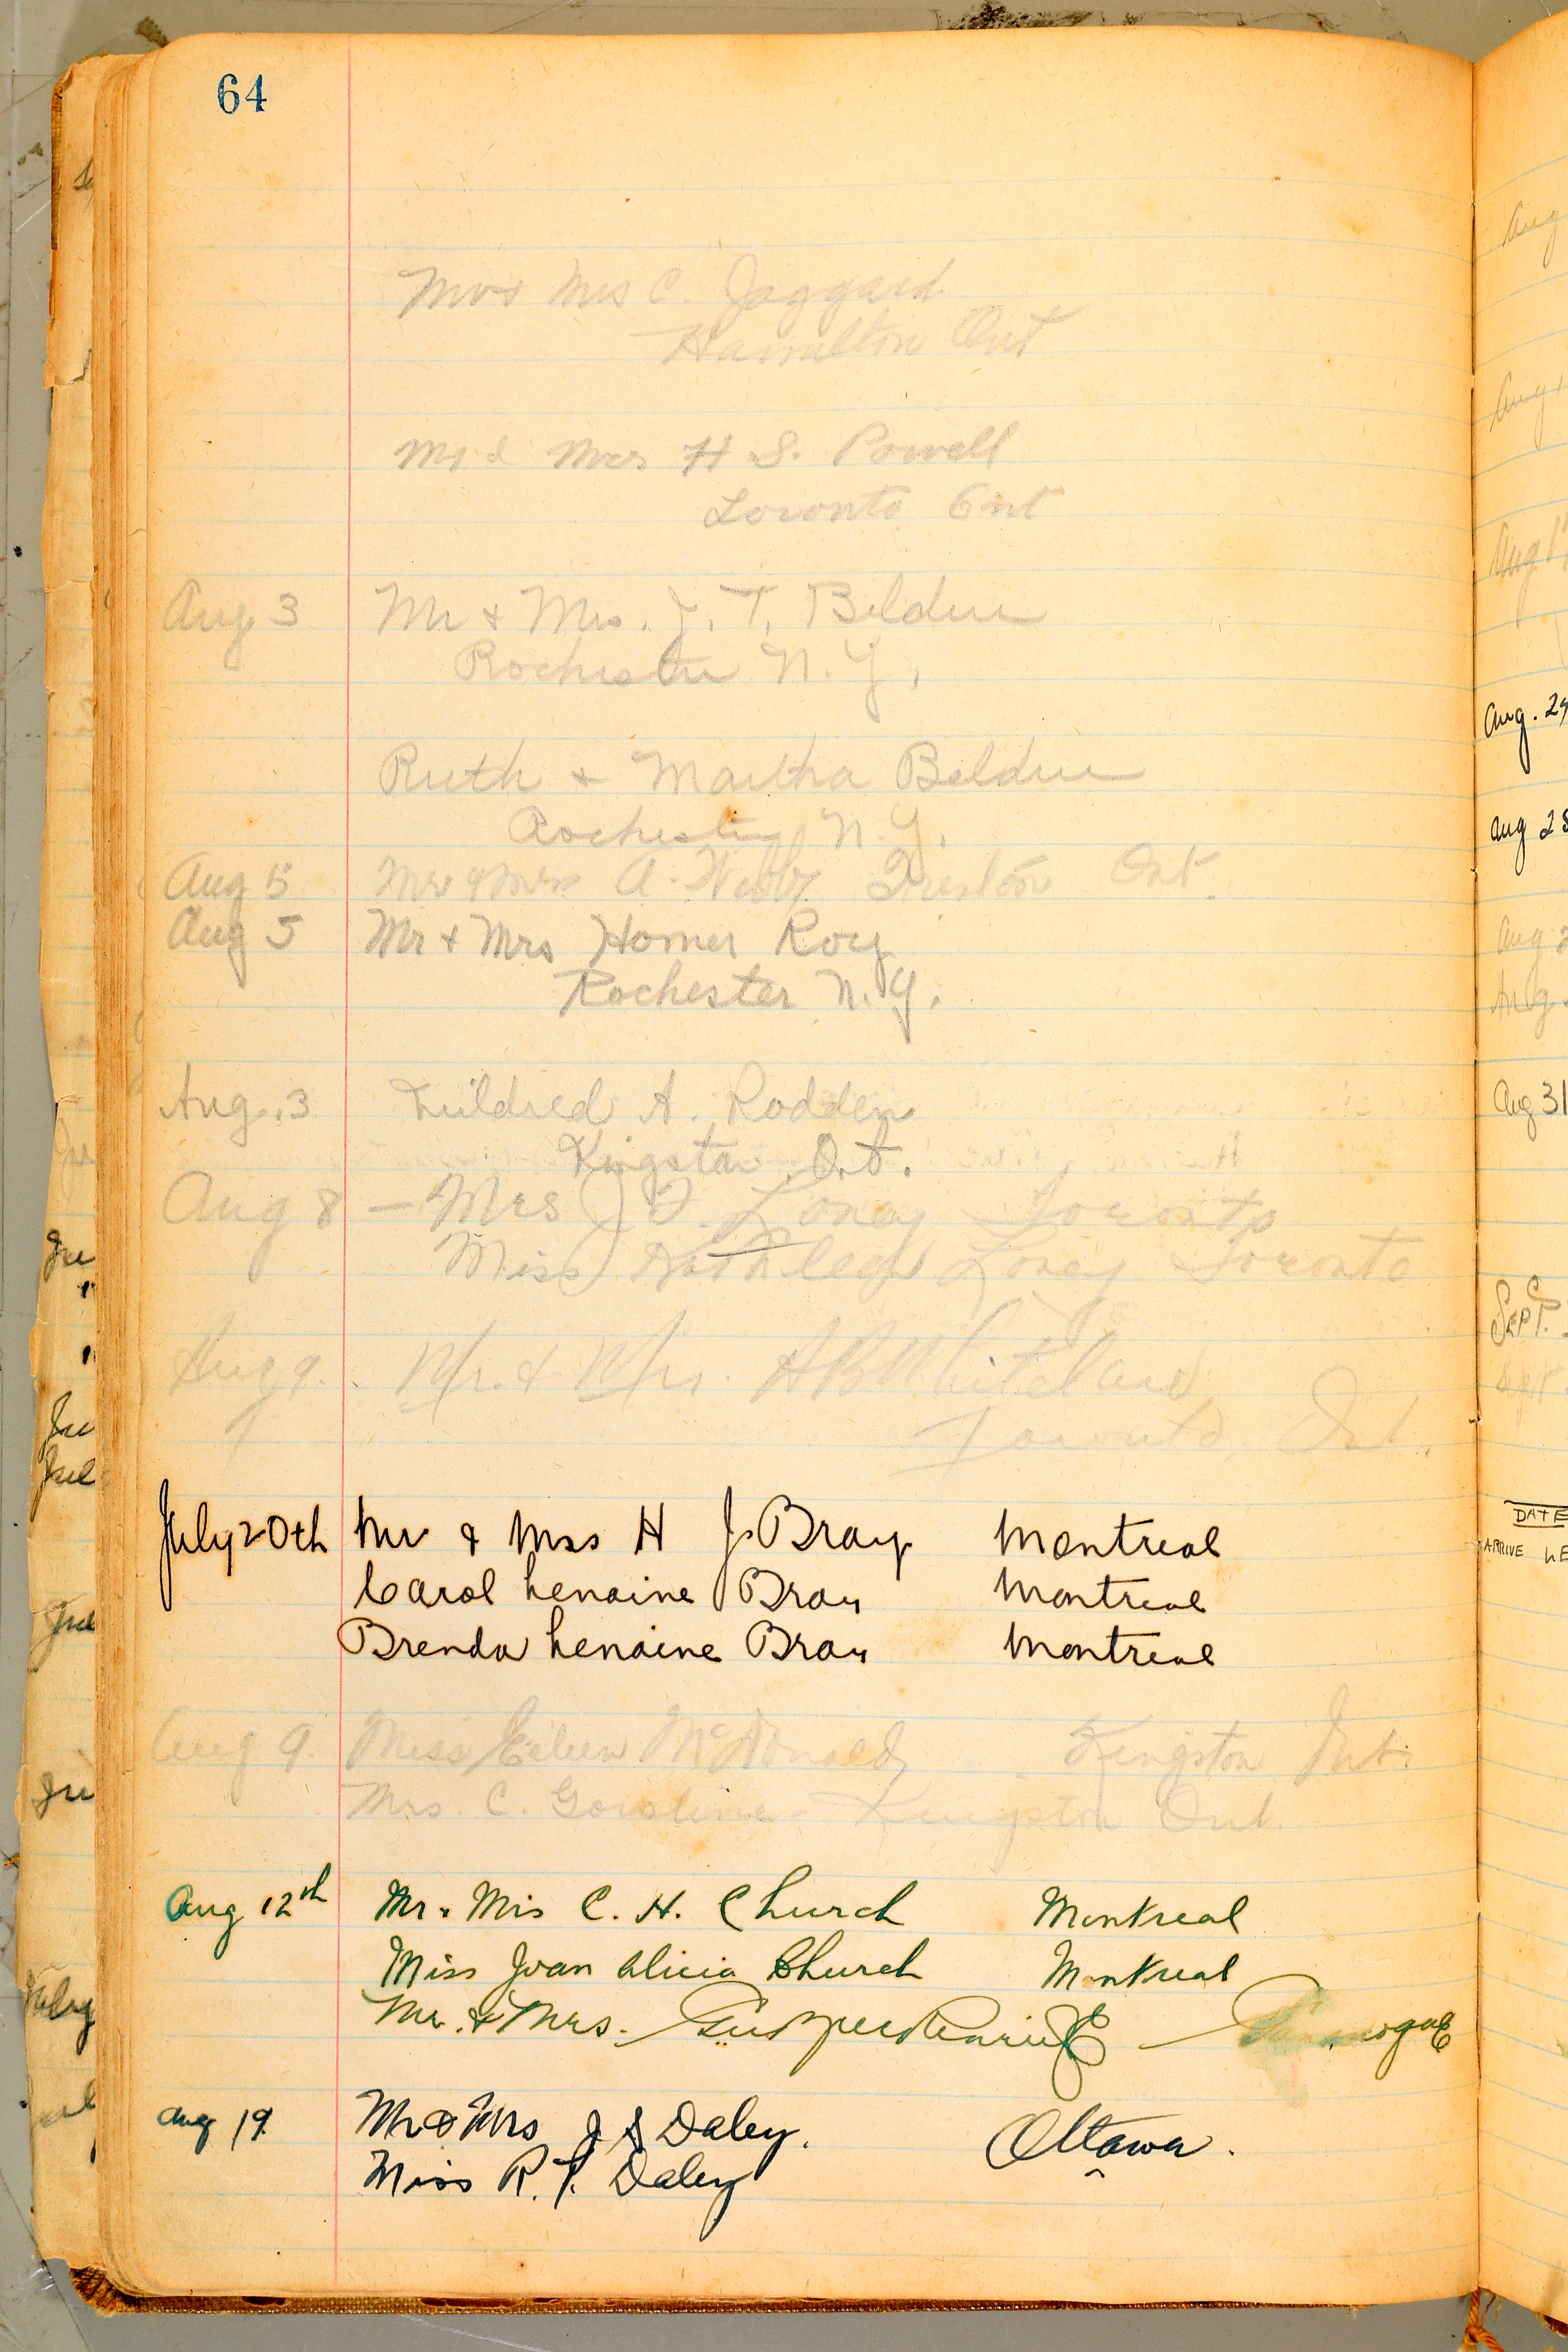 64
Mr & Mrs C. Jaggard
Hamilton Ont
Mr & Mrs H S. Powell
Toronto Ont
Aug 3 Mr & Mrs. J. T. Beldue
Rochester N.Y.
Ruth & Martha Beldue
Rochester, N.Y.
Aug 5 Mr & Mrs A. Webb Ont.
Aug 5 Mr & Mrs Homer Roy
Rochester N.Y.
Aug. 3 Mildred A. Rodden
Kingston Ont.
Aug 8 – Mrs J Loney Toronto
Miss Kathleen Loney Toronto
Aug 9. Mr. & Mrs. H B Whitelaw
Toronto, Ont.
July 20th Mr & Mrs H J. Bray Montreal
Carol Lenaine Bray Montreal
Brenda Lenaine Bray Montreal
Aug 9. Miss Eileen McDonald Kingston Ont.
Mrs. C. Gorsline - Kingston Ont.
Aug 12th Mr. & Mrs C. H. Church Montreal
Miss Joan Alicia Church Montreal
Mr. & Mrs. — Gananoque
Aug 19 Mr & Mrs J S Daley. Ottawa.
Miss R. F. Daley
Aug. 29
Aug 28
Aug 31
Sept.
DATE
ARRIVE